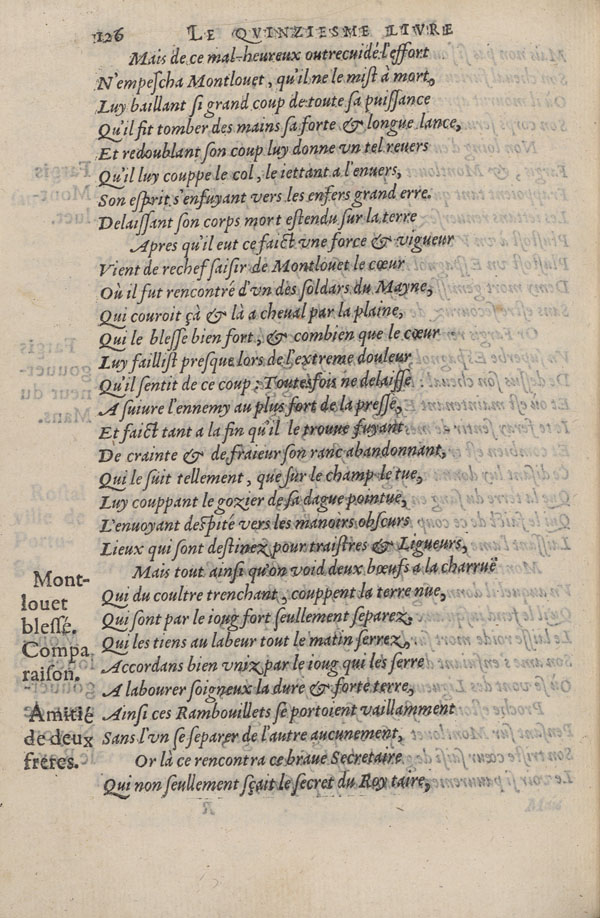 126 LE QVINZIESME LIVRE
Mais de ce mal-heureux outrecuidé l'effort
N'empescha Montlouet, qu'il ne le mist à mort,
Luy baillant si grand coup de toute sa puissance
Qu'il fit tomber des mains sa forte & longue lance,
Et redoublant son coup luy donne vn tel reuers
Qu'il luy couppe le col, le iettant a l'enuers,
Son esprit s'enfuyant vers les enfers grand erre.
Delaissant son corps mort estendu sur la terre
Apres qu'il eut ce faict vne force & vigueur
Vient de rechef saisir de Montlouet le cœur
Où il fut rencontré d'vn des soldars du Mayne,
Qui couroit çà & là a cheual par la plaine,
Qui le blesse bien fort, & combien que le cœur
Luy faillist presque lors de l'extreme douleur
Qu'il sentit de ce coup: Toutesfois ne delaisse
A suiure l'ennemy au plus fort de la presse,
Et faict tant a la fin qu'il le trouue fuyant
De crainte & de fraieur son ranc abandonnant,
Qui le suit tellement, que sur le champ le tue,
Luy couppant le gozier de sa dague pointuë,
L'enuoyant despité vers les manoirs obscurs
Lieux qui sont destinez pour traistres & Ligueurs,
Mais tout ainsi qu'on void deux bœufs a la charruë
Mont-
louet
blessé.
Qui du coultre trenchant, couppent la terre nue,
Qui sont par le ioug fort seullement separez,
Qui les tiens au labeur tout le matin serrez,
Compa
raison.
Accordans bien vniz par le ioug qui les serre
A labourer soigneux la dure & forte terre,
Amitié
de deux
freres.
Ainsi ces Rambouillets se portoient vaillamment
Sans l'vn se separer de l'autre aucunement,
Or là ce rencontra ce braue Secretaire
Qui non seullement sçait le secret du Roy taire,